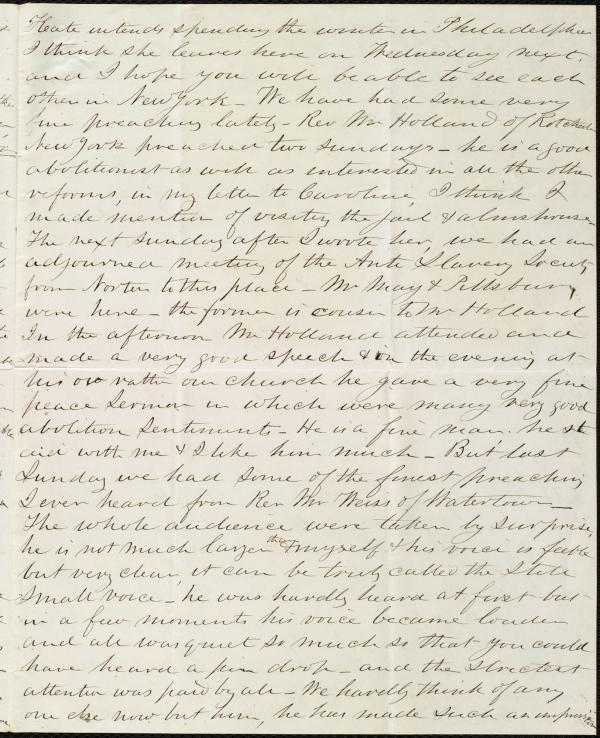 Kate intends spending the winter in Philadelphia
I think she leaves here on Wednesday next,
and I hope you will be able to see each
other in New York - We have had some very
fine preaching lately - Rev Mr Holland of Rochester
New York preached two Sundays - he is a good
abolitionist as well as interested in all the other
reforms, in my letter to Caroline, I think I
made mention of visiting the jail & almshouse -
The next Sunday after I wrote her, we had an
adjourned meeting of the Anti Slavery Society
from Norton to this place - Mr May & Pillsbury
were here - the former is cousin to Mr Holland
In the afternoon Mr Holland attended and
made a very good speech & in the evening at
his or rather our church he gave a very fine
peace Sermon in which were many very good
abolition sentiments - He is a fine man. he st
aid with me & I like him much - But last
Sunday we had some of the finest preaching
I ever heard from Rev Mr Weiss of Watertown -
The whole audience were taken by surprise,
he is not much larger than myself & his voice is feeble
but very clear, it can be truly called the still
small voice - he was hardly heard at first but
in a few moments his voice became louder
and all was quiet so much so that you could
have heard a pin drop - and the strictest
attention was paid by all - We hardly think of any
one else now but him, he has made such an impression